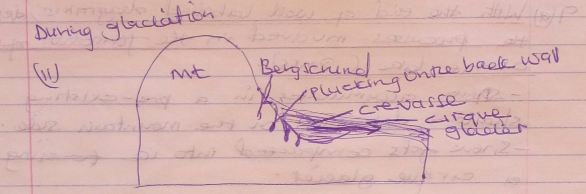 During glaciation
(ii)
Mt
Bergschrund
plucking on the back wall
crevasse
cirque
glacier